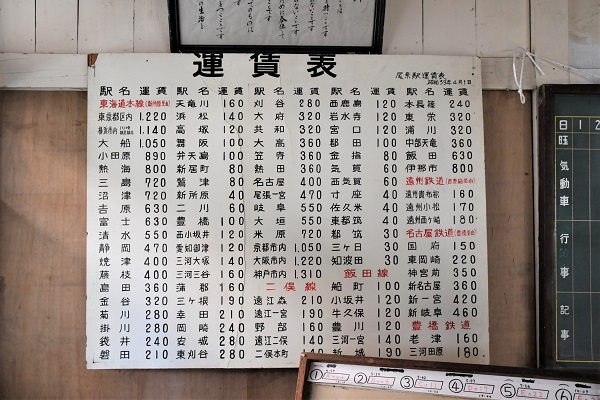 運賃表
尾奈駅運賃表
昭和39年4月1日
駅名 運賃 駅名 運賃 駅名 運賃 駅名 運賃 駅名 運賃
東海道本線 天竜川 160 刈谷 280 西鹿島 120 本長篠 240
東京都区内 1,220 浜松 140 大府 320 岩水寺 120 東栄 320
横浜市内 1,140 高塚 120 共和 320 宮口 120 浦川 320
大船 1,050 舞阪 100 大高 360 都田 100 中部天竜 360
小田原 890 弁天島 100 笠寺 360 金指 80 飯田 630
熱海 800 新居町 80 熱田 360 気賀 60 伊那市 800
三島 720 鷲津 80 名古屋 400 西気賀 60 遠州鉄道
沼津 720 新所原 40 尾張一宮 470 寸座 40 遠州貴布祢 160
吉原 630 二川 60 岐阜 550 佐久米 40 遠州小松 170
富士 630 豊橋 100 大垣 550 東都筑 40 遠州西ヶ崎 180
清水 550 西小坂井 120 米原 720 都筑 30 名古屋鉄道
静岡 470 愛知御津 120 京都市内 1,050 三ヶ日 30 国府 150
焼津 400 三河大塚 140 大阪市内 1,220 知波田 30 東岡崎 220
藤枝 400 三河三谷 160 神戸市内 1,310 飯田線 神宮前 350
島田 360 蒲郡 160 二俣線 船町 100 新名古屋 360
金谷 320 三ヶ根 190 遠江森 210 小坂井 120 新一宮 420
菊川 280 幸田 210 遠江一宮 190 牛久保 120 新岐阜 460
掛川 280 岡崎 240 野部 160 豊川 120 豊橋鉄道
袋井 240 安城 280 遠江二俣 140 三河一宮 140 老津 160
磐田 210 東刈谷 280 二俣本町 140 新城 190 三河田原 180
日 1 2
気動車行事記事
① ② ③ ④ ⑤ ⑥